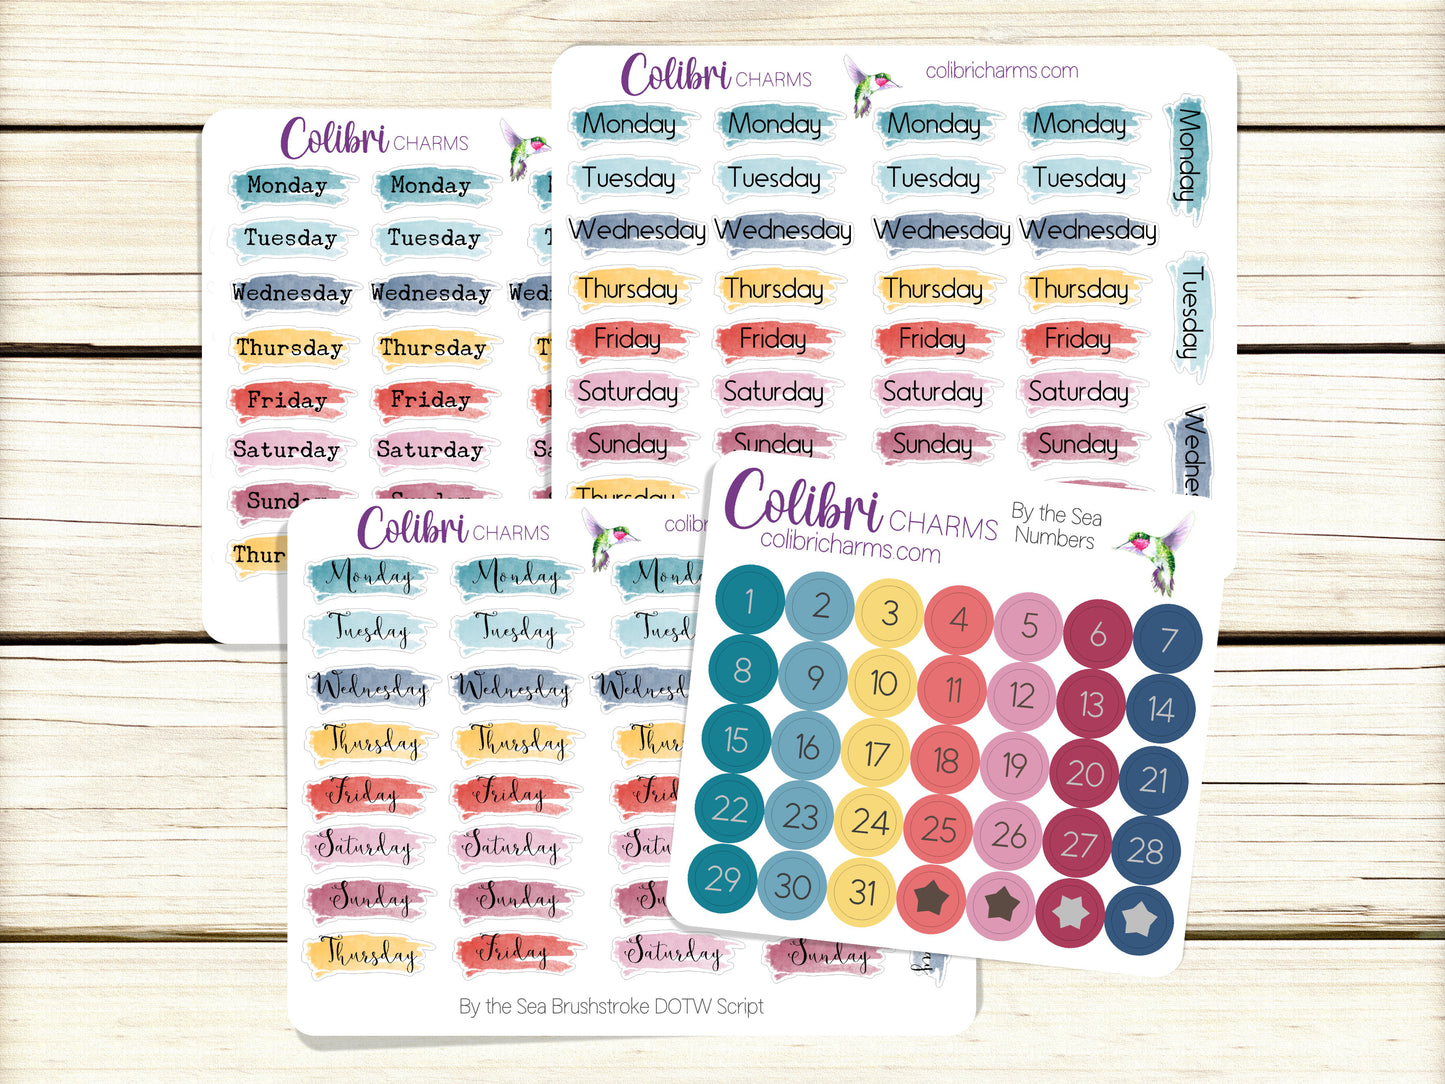 Colibri CHARMS
Monday Monday
Tuesday Tuesday
Wednesday Wednesday Wed
Thursday Thursday
Friday Friday
Saturday Saturday
Sund
Thur
Colibri CHARMS colibricharms.com
Monday Monday Monday Monday
Tuesday Tuesday Tuesday Tuesday
Wednesday Wednesday Wednesday Wednesday
Thursday Thursday Thursday Thursday
Friday Friday Friday Friday
Saturday Saturday Saturday Saturday
Sunday Sunday Sunday Sunday
Thursday
Monday
Tuesday
Wednes
Colibri CHARMS colibr
Monday Monday Mond
Tuesday Tuesday Tuesd
Wednesday Wednesday Wednesd
Thursday Thursday Thur
Friday Friday Frid
Saturday Saturday Satu
Sunday Sunday Su
Thursday Friday Saturday Sunday
By the Sea Brushstroke DOTW Script
Colibri CHARMS
colibricharms.com
By the Sea
Numbers
1 2 3 4 5 6 7
8 9 10 11 12 13 14
15 16 17 18 19 20 21
22 23 24 25 26 27 28
29 30 31